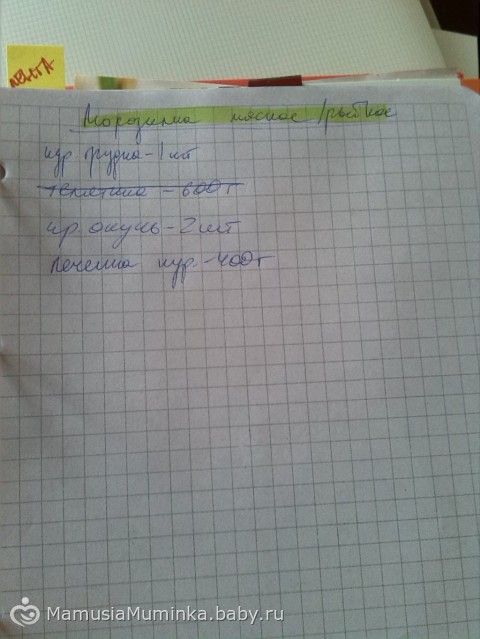 Морозилка мясное/рыбное
кур. грудка - 1 шт
телятина - 600 г
кр. окунь - 2 шт
печенка кур. - 400 г
MamusiaMuminka.baby.ru